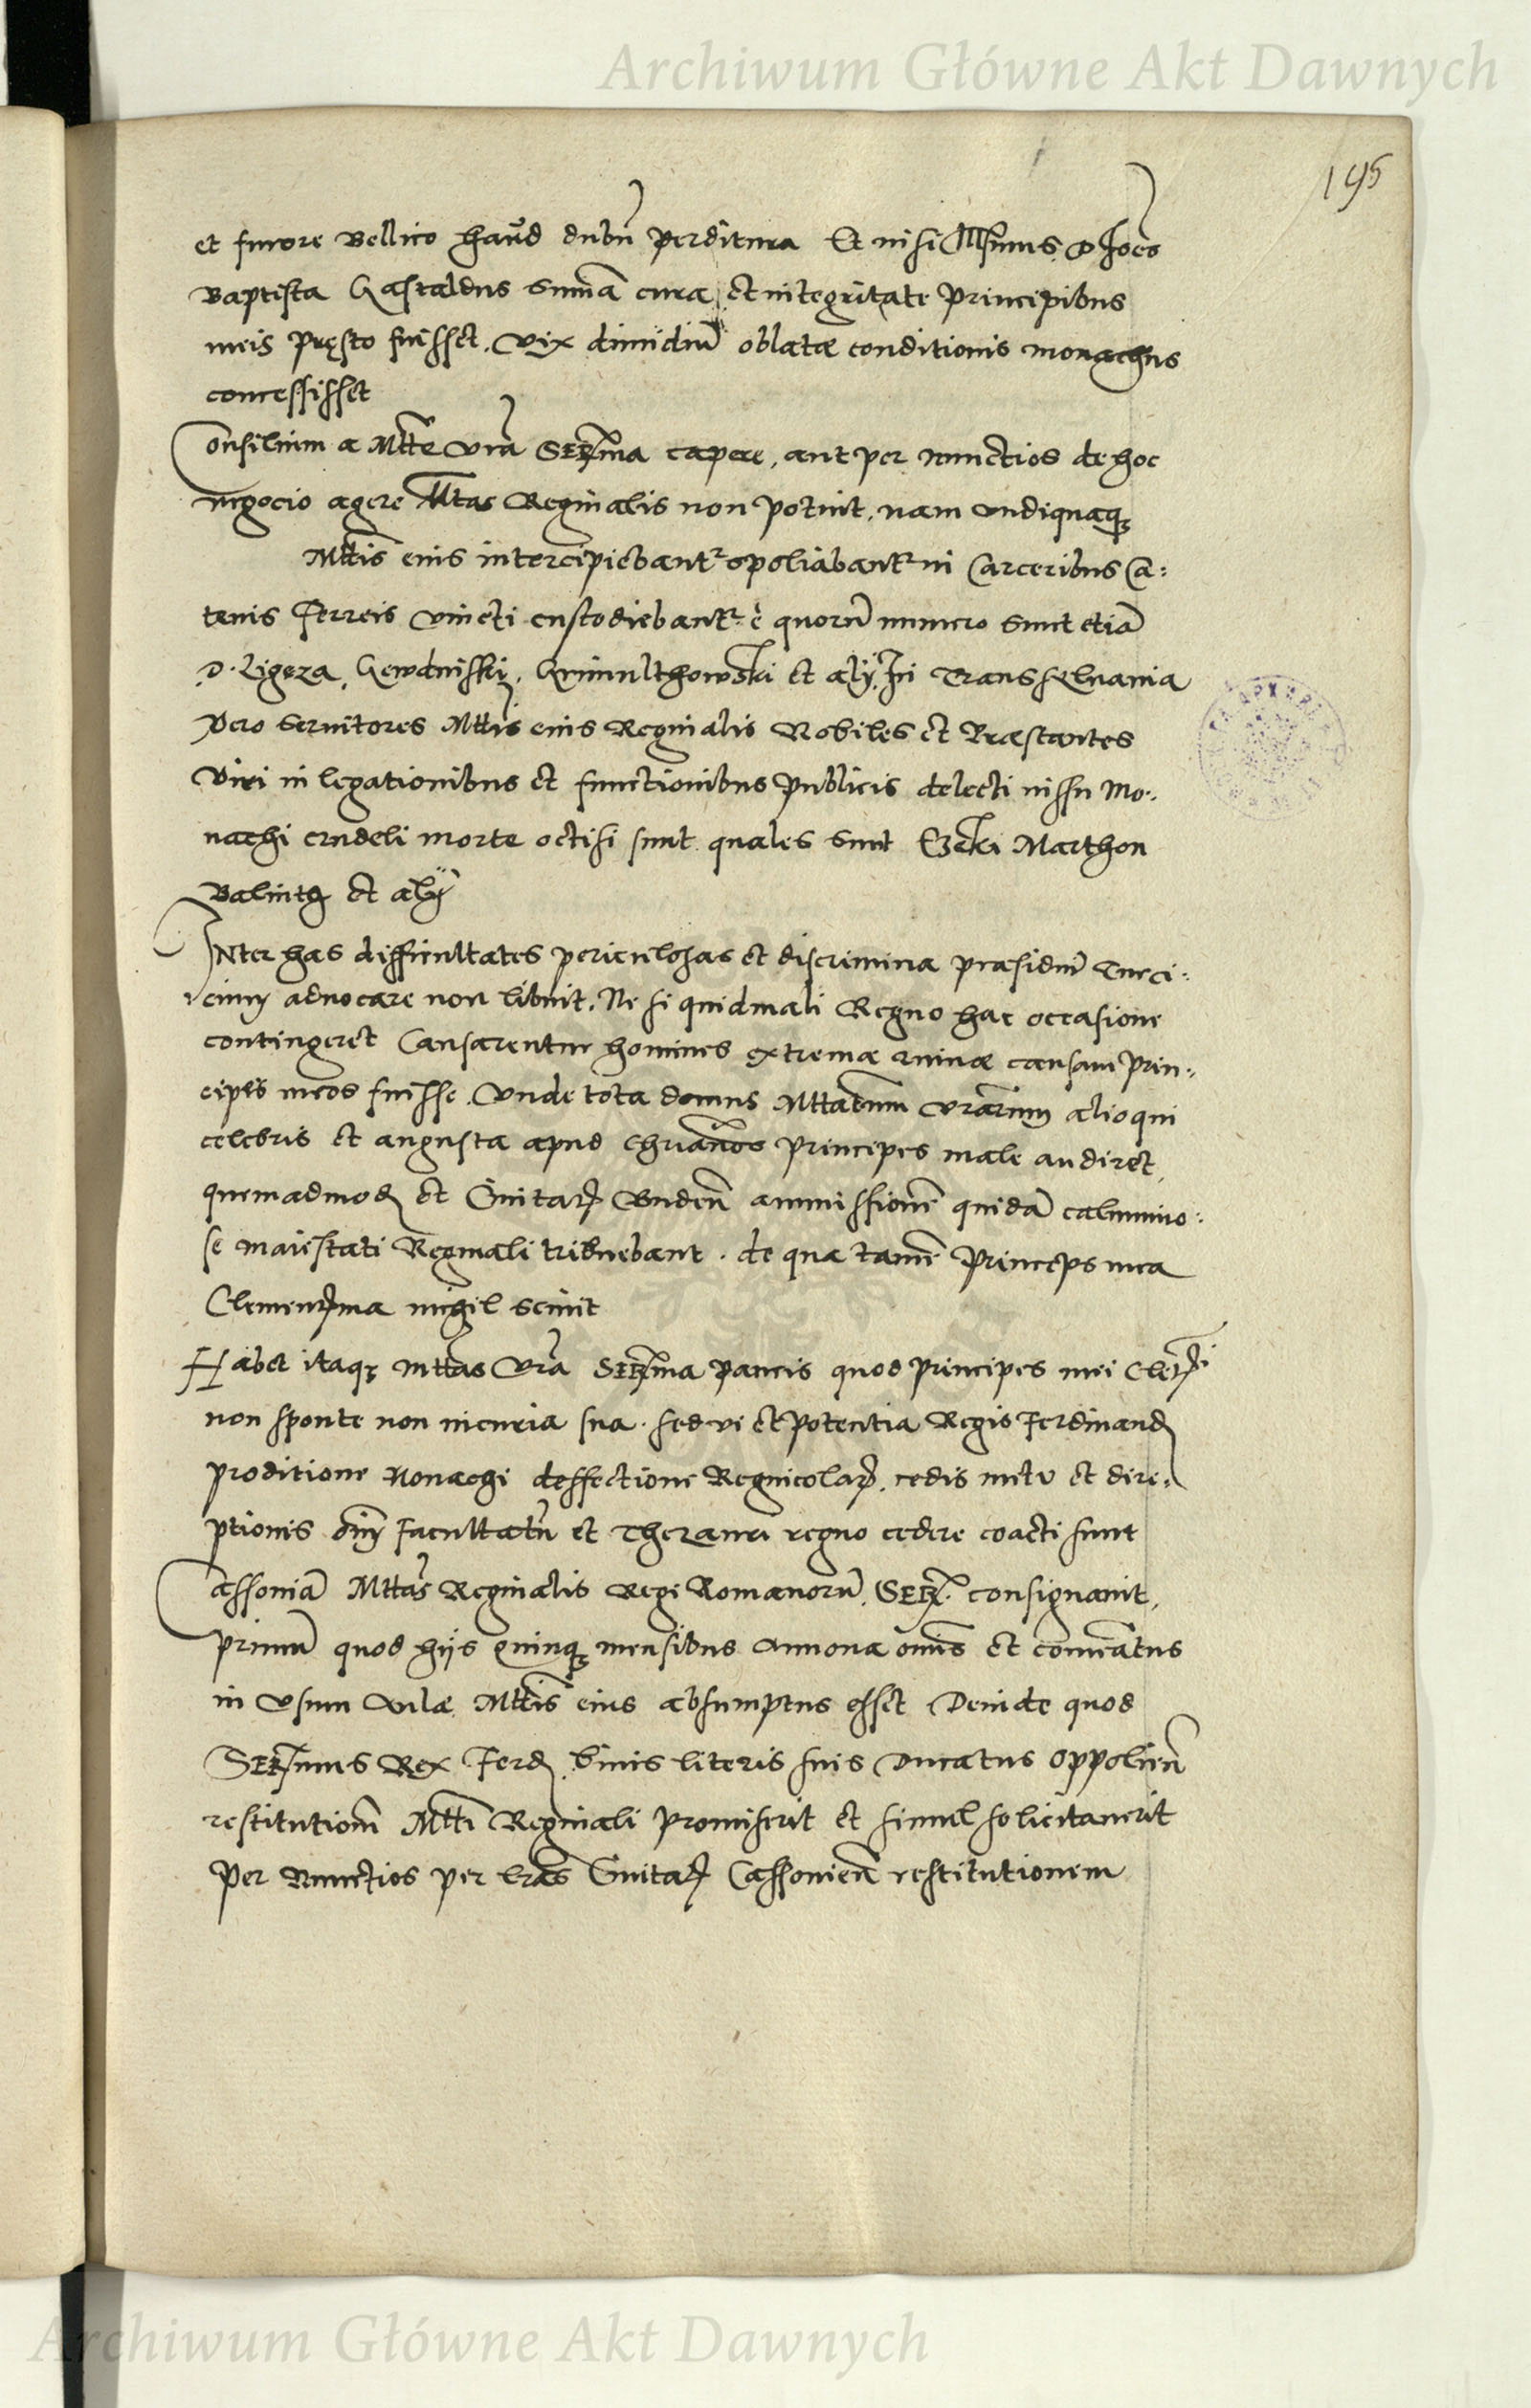 Archiwum Główne Akt Dawnych
195
et furore Bellico haud dubiū perditura Et nisi Illsimus D Joēs
Baptista Gastaldus sumā cura et integritate Principibus
meis pręsto fuisset. Vix dimidiū oblatæ conditionis monachus
concessisset
Consilium a Mtte vrā SERma capere, aut per nunctios de hoc
negocio agere Mtas Reginalis non potuit, nam undiquaqȝ
Mttis eius intercipiebantr spoliabantr in Carceribus Ca:
tenis Ferreis vincti custodiebantr è quorū numero sunt etiā
D. Ligeza, Gewdniski, et alÿ. In Transsylvania
vero servitores Mttis eius Reginalis Nobiles et Præstantes
Viri in legationibus et functionibus publicis delecti iussu Mo:
nachi crudeli morte octisi sunt quales sunt Ezeki Marthon
Balinth et alÿ
INter has difficultates periculosas et discrimina præsidiū Turci:
cum advocare non libuit. Ne si quid mali Regno hac occasione
contingeret Causarentur homines extremæ ruinæ causam Prin:
cipes meos fuisse. Unde tota domus Mttatum vrārum alioqui
celebris et augusta apud Chrianos Principes male audiret,
quemadmod et Civitatis Buden amissionē quidā calumnio:
se maiestati Reginali tribuebant. de qua tamē Princeps mea
Clementma nihil scivit
Habet itaqȝ mttas vrā SERma paucis quod Principes mei Clemi
non sponte non incuria sua. sed vi et potentia Regis Ferdinand
proditione Monachi deffectione Regnicolar. cedis metu et dire:
ptionis oīm Facultatū et Thezauri regno cedere coacti sunt
Cassoniā Mttas Reginalis Regi Romanorū SER. consignavit,
primū quod hijs quinqȝ mensibus annona omis et comeatus
in usum Aulæ Mttis eius absumptus esset Deinde quod
SERsimus Rex Ferd binis literis suis Ducatus Oppolien
restitutionē Mtti Reginali promiserit et simul solicitaverit
per Nunctios per lrās Civitatis Cassovien restitutionem
Archiwum Główne Akt Dawnych